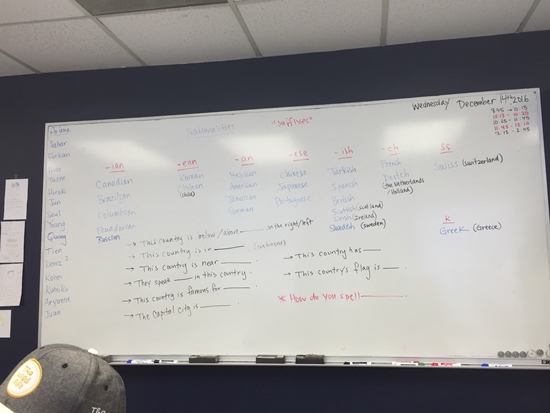 Wednesday December 14th, 2016
8:45 → 10:15
Nationalities "Suffixes"
-ian
-ean
-an
-ese
-ish
-ch
Ss
Canadian
Brazilian
Columbian
Russian
Korean
Chilean
(Chile)
Mexican
American
German
Chinese
Japanese
Portuguese
Turkish
Spanish
British
Scottish (Scotland)
Irish (Ireland)
Swedish (Sweden)
French
Dutch
(the Netherlands
/Holland)
Swiss (Switzerland)
k
Greek (Greece)
Sahar
Hiroki
Quang
Tien
Deniz 2
Aryanne
Juan
→ This country is below / above ___ on the right/left
→ This country is in ___ (continent)
→ This country is near ___
→ They speak ___ in this country.
→ This country is famous for ___
→ The Capital city is ___
→ This country has ___
→ This country's flag is ___
* How do you spell ___